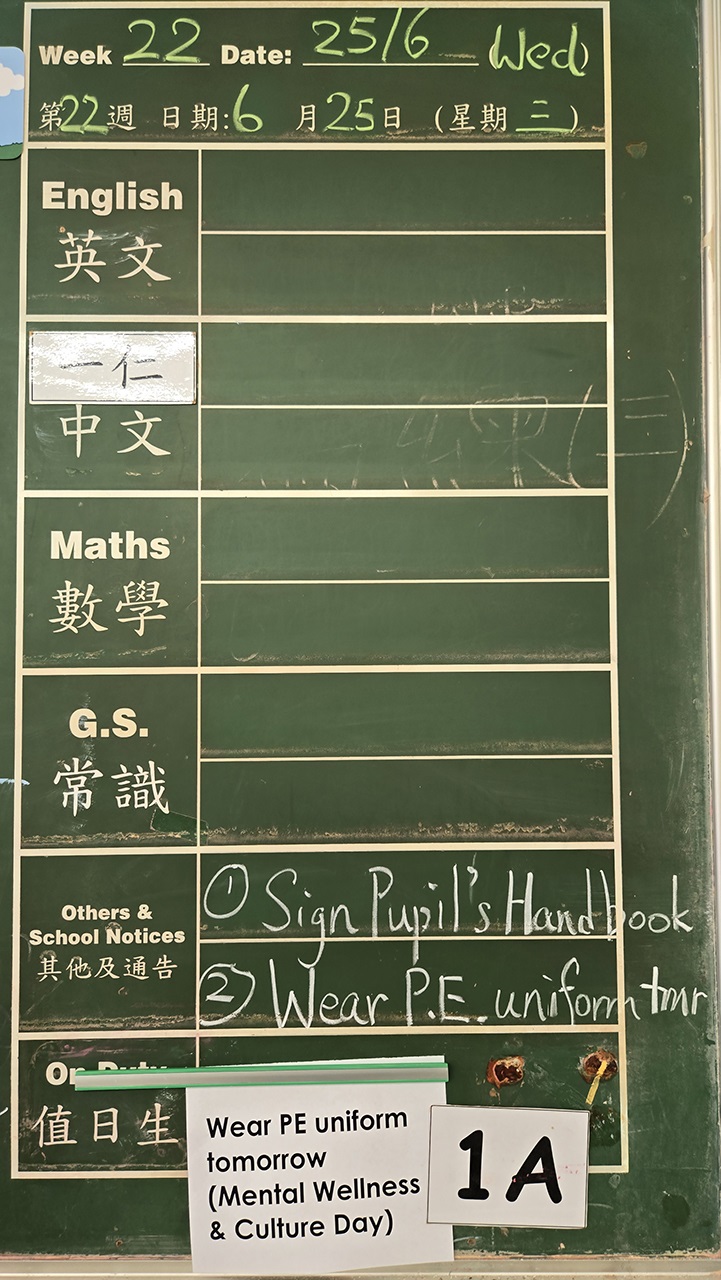 Week 22 Date: 25/6 (Wed)
第22週 日期:6 月25日 (星期三)
English
英文
一仁
中文
Maths
數學
G.S.
常識
Others &
School Notices
其他及通告
① Sign Pupil's Handbook
② Wear P.E. uniform tmr
On Duty
值日生
Wear PE uniform
tomorrow
(Mental Wellness
& Culture Day)
1A